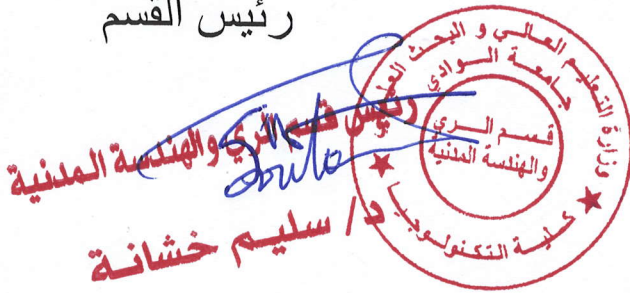 رئيس القسم
رئيس قسم الري والهندسة المدنية
د/ سليم خشانة
وزارة التعليم العالي و البحث العلمي
جامعة الوادي
قسم الري
والهندسة المدنية
كلية التكنولوجيا